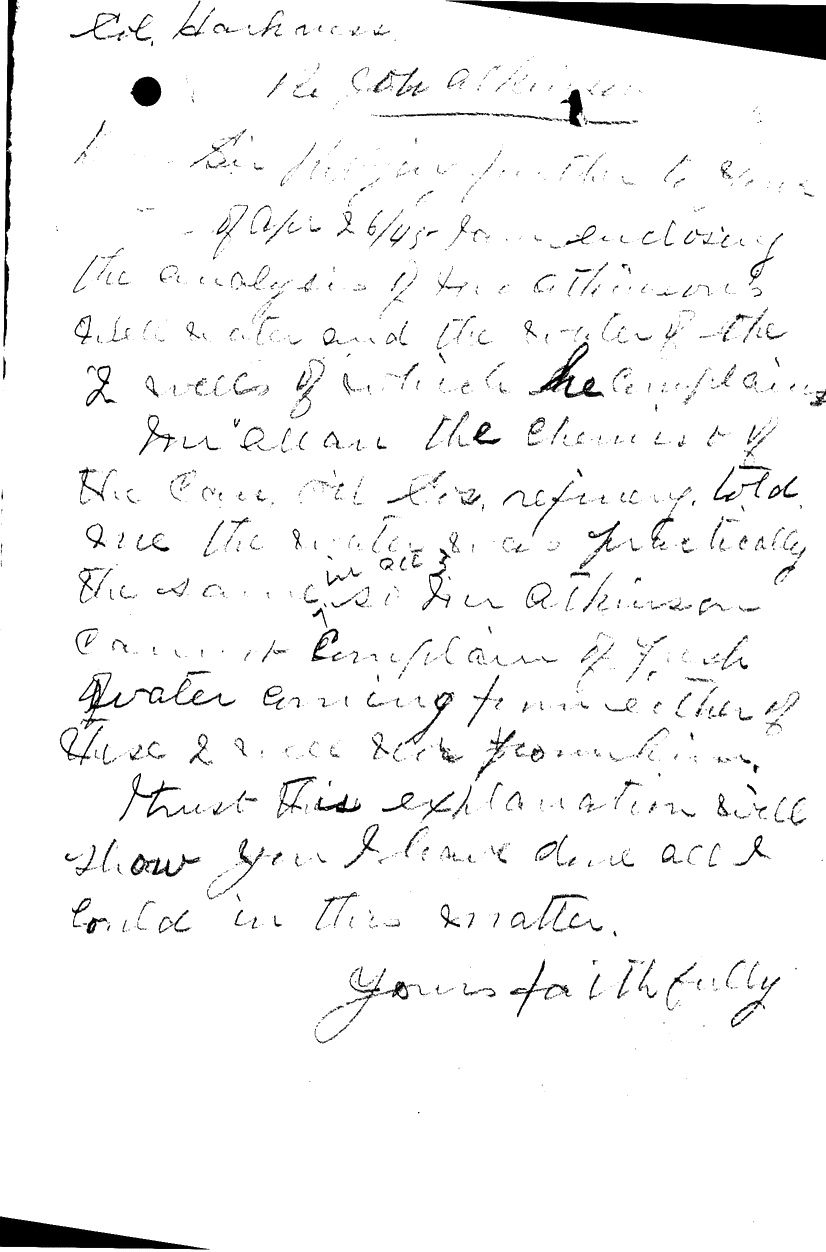 Col. Harkness.
Re Jon Atkinson
Sir Replying further to yours
of Apr 26/45 I am enclosing
the analysis of Mr Atkinson's
well water and the water of the
2 wells of which he complains
Mr Allan the chemist of
the Can. Oil Cos. refinery, told
me the water was practically
the same in all 3 so Mr Atkinson
Cannot Complain of fresh
water coming from either of
these 2 wells
I trust this explanation will
show you I have done all I
Could in this matter.
Yours faithfully